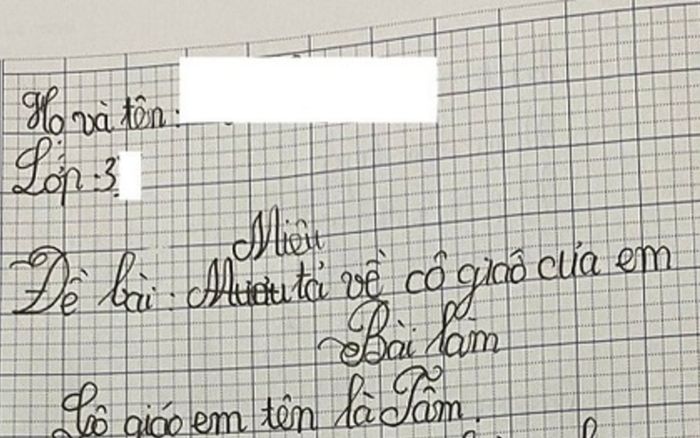 Họ và tên:
Lớp: 3
Miêu
Đề bài: Mươu tả về cô giáo của em
Bài làm
Cô giáo em tên là Tâm.